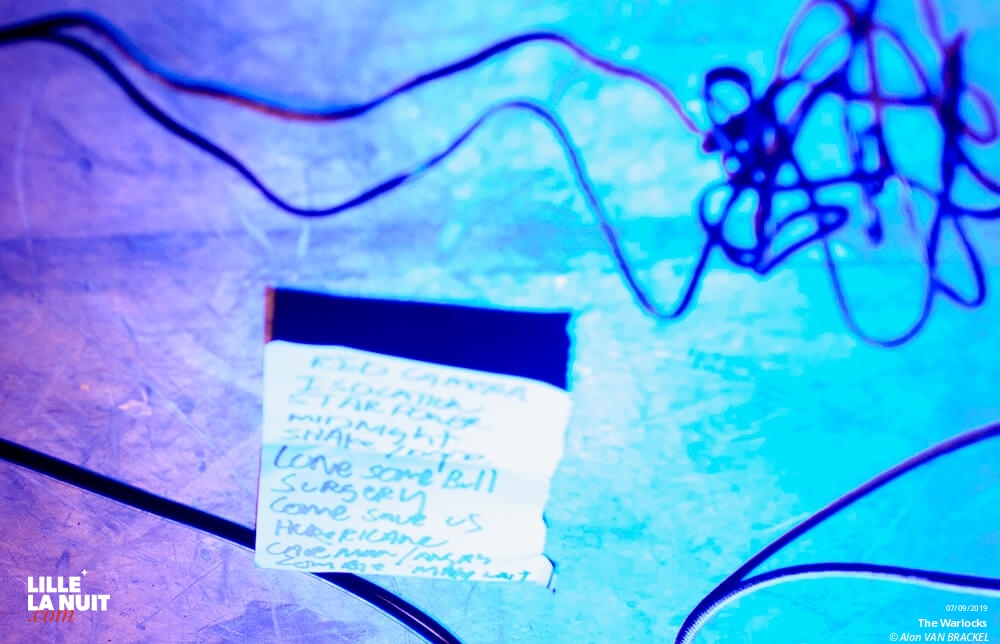 RED CAMERA
ISOLATION
MIDNIGHT
SHAKE /
LONE SOME Bull
SURGERY
COME SAVE US
HURRICANE
CAVEMAN /
ZOMBIE
LILLE
LA NUIT
.com
07/09/2019
The Warlocks
© Alan VAN BRACKEL